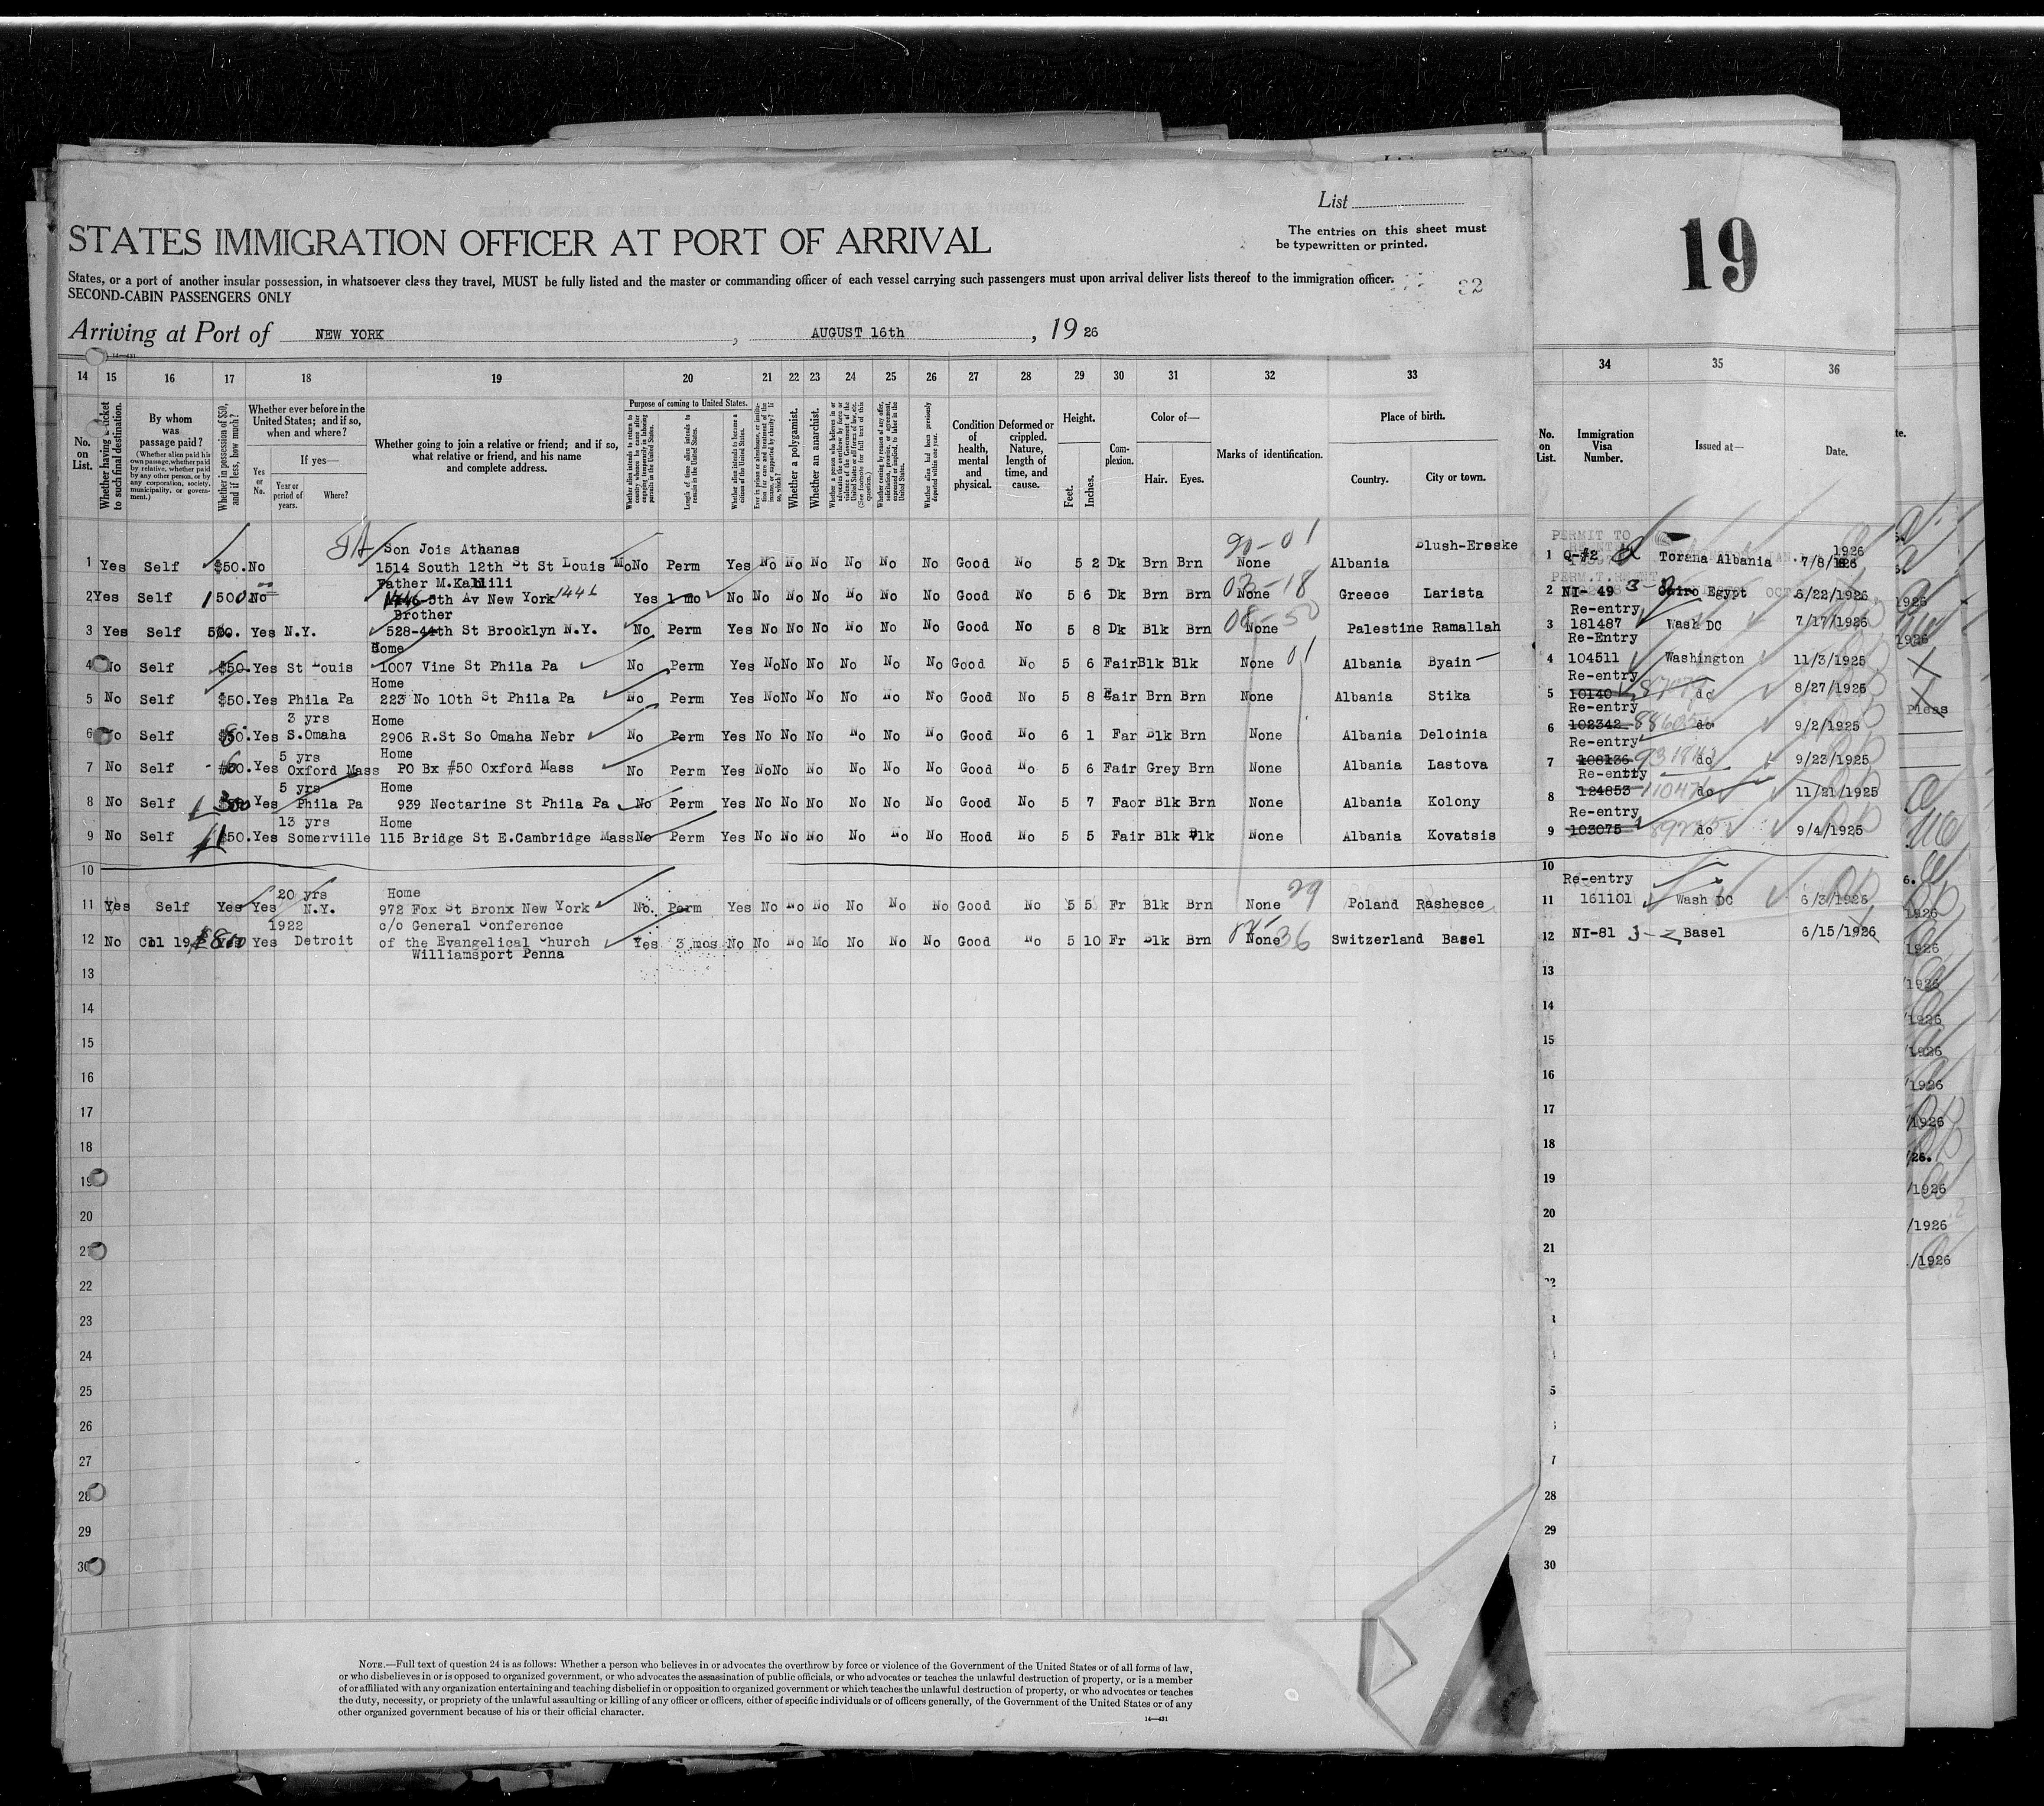 List
The entries on this sheet must
be typewritten or printed.
19
STATES IMMIGRATION OFFICER AT PORT OF ARRIVAL
States, or a port of another insular possession, in whatsoever class they travel, MUST be fully listed and the master or commanding officer of each vessel carrying such passengers must upon arrival deliver lists thereof to the immigration officer.
SECOND-CABIN PASSENGERS ONLY
Arriving at Port of NEW YORK, AUGUST 16th, 19 26
14 15 16 17 18 19 20 21 22 23 24 25 26 27 28 29 30 31 32 33 34 35 36
No. on List.
Whether having a ticket to such final destination.
By whom was passage paid?
(Whether alien paid his own passage, whether paid by relative, whether paid by any other person, or by any corporation, society, municipality, or government.)
Whether in possession of $50, and if less, how much?
Whether ever before in the United States; and if so, when and where?
Yes or No.
If yes—
Year or period of years.
Where?
Whether going to join a relative or friend; and if so, what relative or friend, and his name and complete address.
Purpose of coming to United States.
Whether alien intends to return to country whence he came after engaging temporarily in laboring pursuits in the United States.
Length of time alien intends to remain in the United States.
Whether alien intends to become a citizen of the United States.
Whether a polygamist.
Whether an anarchist.
Condition of health, mental and physical.
Deformed or crippled. Nature, length of time, and cause.
Height.
Feet.
Inches.
Complexion.
Color of—
Hair.
Eyes.
Marks of identification.
Place of birth.
Country.
City or town.
No. on List.
Immigration Visa Number.
Issued at—
Date.
Son Jois Athanas
1 Yes Self $50. No 1514 South 12th St St Louis Mo No Perm Yes No No No No No No Good No 5 2 Dk Brn Brn None Albania Blush-Erseke 1 Q-#2 Torana Albania 7/8/1926
Father M.Kallili
2 Yes Self 500 No 5th Av New York 1446 Yes 1 mo No No No No No No No Good No 5 6 Dk Brn Brn None Greece Larista 2 NI- 49 Cairo Egypt 6/22/1926
Brother Re-entry
3 Yes Self 500. Yes N.Y. 528-44th St Brooklyn N.Y. No Perm Yes No No No No No No Good No 5 8 Dk Blk Brn None Palestine Ramallah 3 181487 Wash DC 7/17/1926
Home Re-Entry
4 No Self $50. Yes St Louis 1007 Vine St Phila Pa No Perm Yes No No No No No No Good No 5 6 Fair Blk Blk None Albania Byain 4 104511 Washington 11/3/1925
Home Re-entry
5 No Self $50. Yes Phila Pa 223 No 10th St Phila Pa No Perm Yes No No No No No No Good No 5 8 Fair Brn Brn None Albania Stika 5 10140 do 8/27/1925
3 yrs Home Re-entry
6 No Self Yes S.Omaha 2906 R.St So Omaha Nebr No Perm Yes No No No No No No Good No 6 1 Far Blk Brn None Albania Deloinia 6 102342 do 9/2/1925
5 yrs Home Re-entry
7 No Self Yes Oxford Mass PO Bx #50 Oxford Mass No Perm Yes No No No No No No Good No 5 6 Fair Grey Brn None Albania Lastova 7 108136 do 9/23/1925
5 yrs Home Re-entry
8 No Self Yes Phila Pa 939 Nectarine St Phila Pa No Perm Yes No No No No No No Good No 5 7 Faor Blk Brn None Albania Kolony 8 124853 do 11/21/1925
13 yrs Home Re-entry
9 No Self $50. Yes Somerville 115 Bridge St E.Cambridge Mass No Perm Yes No No No No No No Hood No 5 5 Fair Blk Blk None Albania Kovatsis 9 103075 do 9/4/1925
10 10
20 yrs Home Re-entry
11 Yes Self Yes Yes N.Y. 972 Fox St Bronx New York No. Perm Yes No No No No No No Good No 5 5 Fr Blk Brn None 29 Poland Rashesce 11 161101 Wash DC 6/3/1926
1922 c/o General Conference
12 No Yes Yes Detroit of the Evangelical Church Yes 3 mos No No No Mo No No No Good No 5 10 Fr Blk Brn None 36 Switzerland Basel 12 NI-81 Basel 6/15/1926
Williamsport Penna
13 13
14 14
15 15
16 16
17 17
18 18
19 19
20 20
21 21
22
23
24
25
26
27
28 28
29 29
30 30
NOTE.—Full text of question 24 is as follows: Whether a person who believes in or advocates the overthrow by force or violence of the Government of the United States or of all forms of law,
or who disbelieves in or is opposed to organized government, or who advocates the assassination of public officials, or who advocates or teaches the unlawful destruction of property, or is a member
of or affiliated with any organization entertaining and teaching disbelief in or opposition to organized government or which teaches the unlawful destruction of property, or who advocates or teaches
the duty, necessity, or propriety of the unlawful assaulting or killing of any officer or officers, either of specific individuals or of officers generally, of the Government of the United States or of any
other organized government because of his or their official character.
14—431